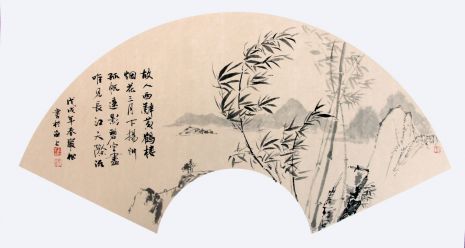 故人西辭黃鶴樓
烟花三月下揚州
孤帆遠影碧空盡
唯見長江天際流
戊戌年春